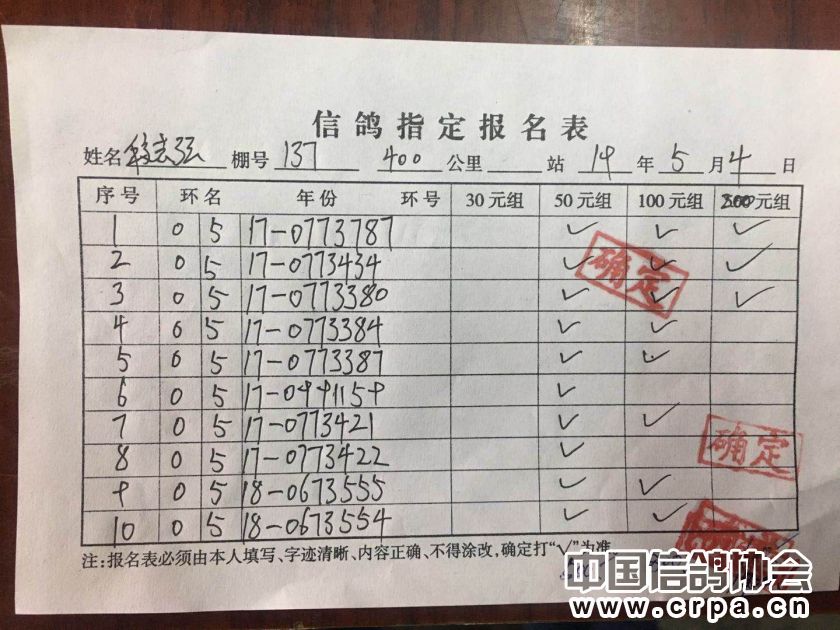 信鸽指定报名表
姓名 志强 棚号 137 400 公里 站 19 年 5 月 4 日
序号 环名 年份 环号 30元组 50元组 100元组 200元组
1 0 5 17-0773787 ✓ ✓ ✓
2 0 5 17-0773434 ✓ ✓ ✓
3 0 5 17-0773380 ✓ ✓ ✓
4 0 5 17-0773384 ✓ ✓
5 0 5 17-0773387 ✓ ✓
6 0 5 17-0991159 ✓
7 0 5 17-0773421 ✓ ✓
8 0 5 17-0773422 ✓
9 0 5 18-0673555 ✓ ✓
10 0 5 18-0673554 ✓ ✓
确定
确定
注:报名表必须由本人填写、字迹清晰、内容正确、不得涂改,确定打“√”为准
中国信鸽协会
www.crpa.cn